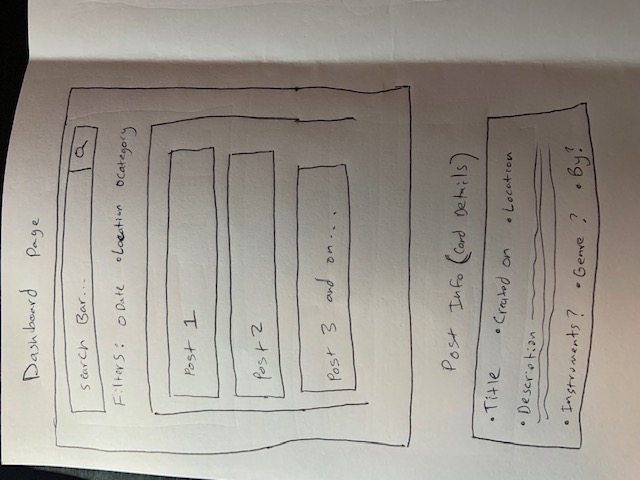 Dashboard Page
Search Bar...
Filters: Date Location Category
Post 1
Post 2
Post 3 and on...
Post Info (Card Details)
• Title • Created on • Location
• Description
• Instruments? • Genre? • By?